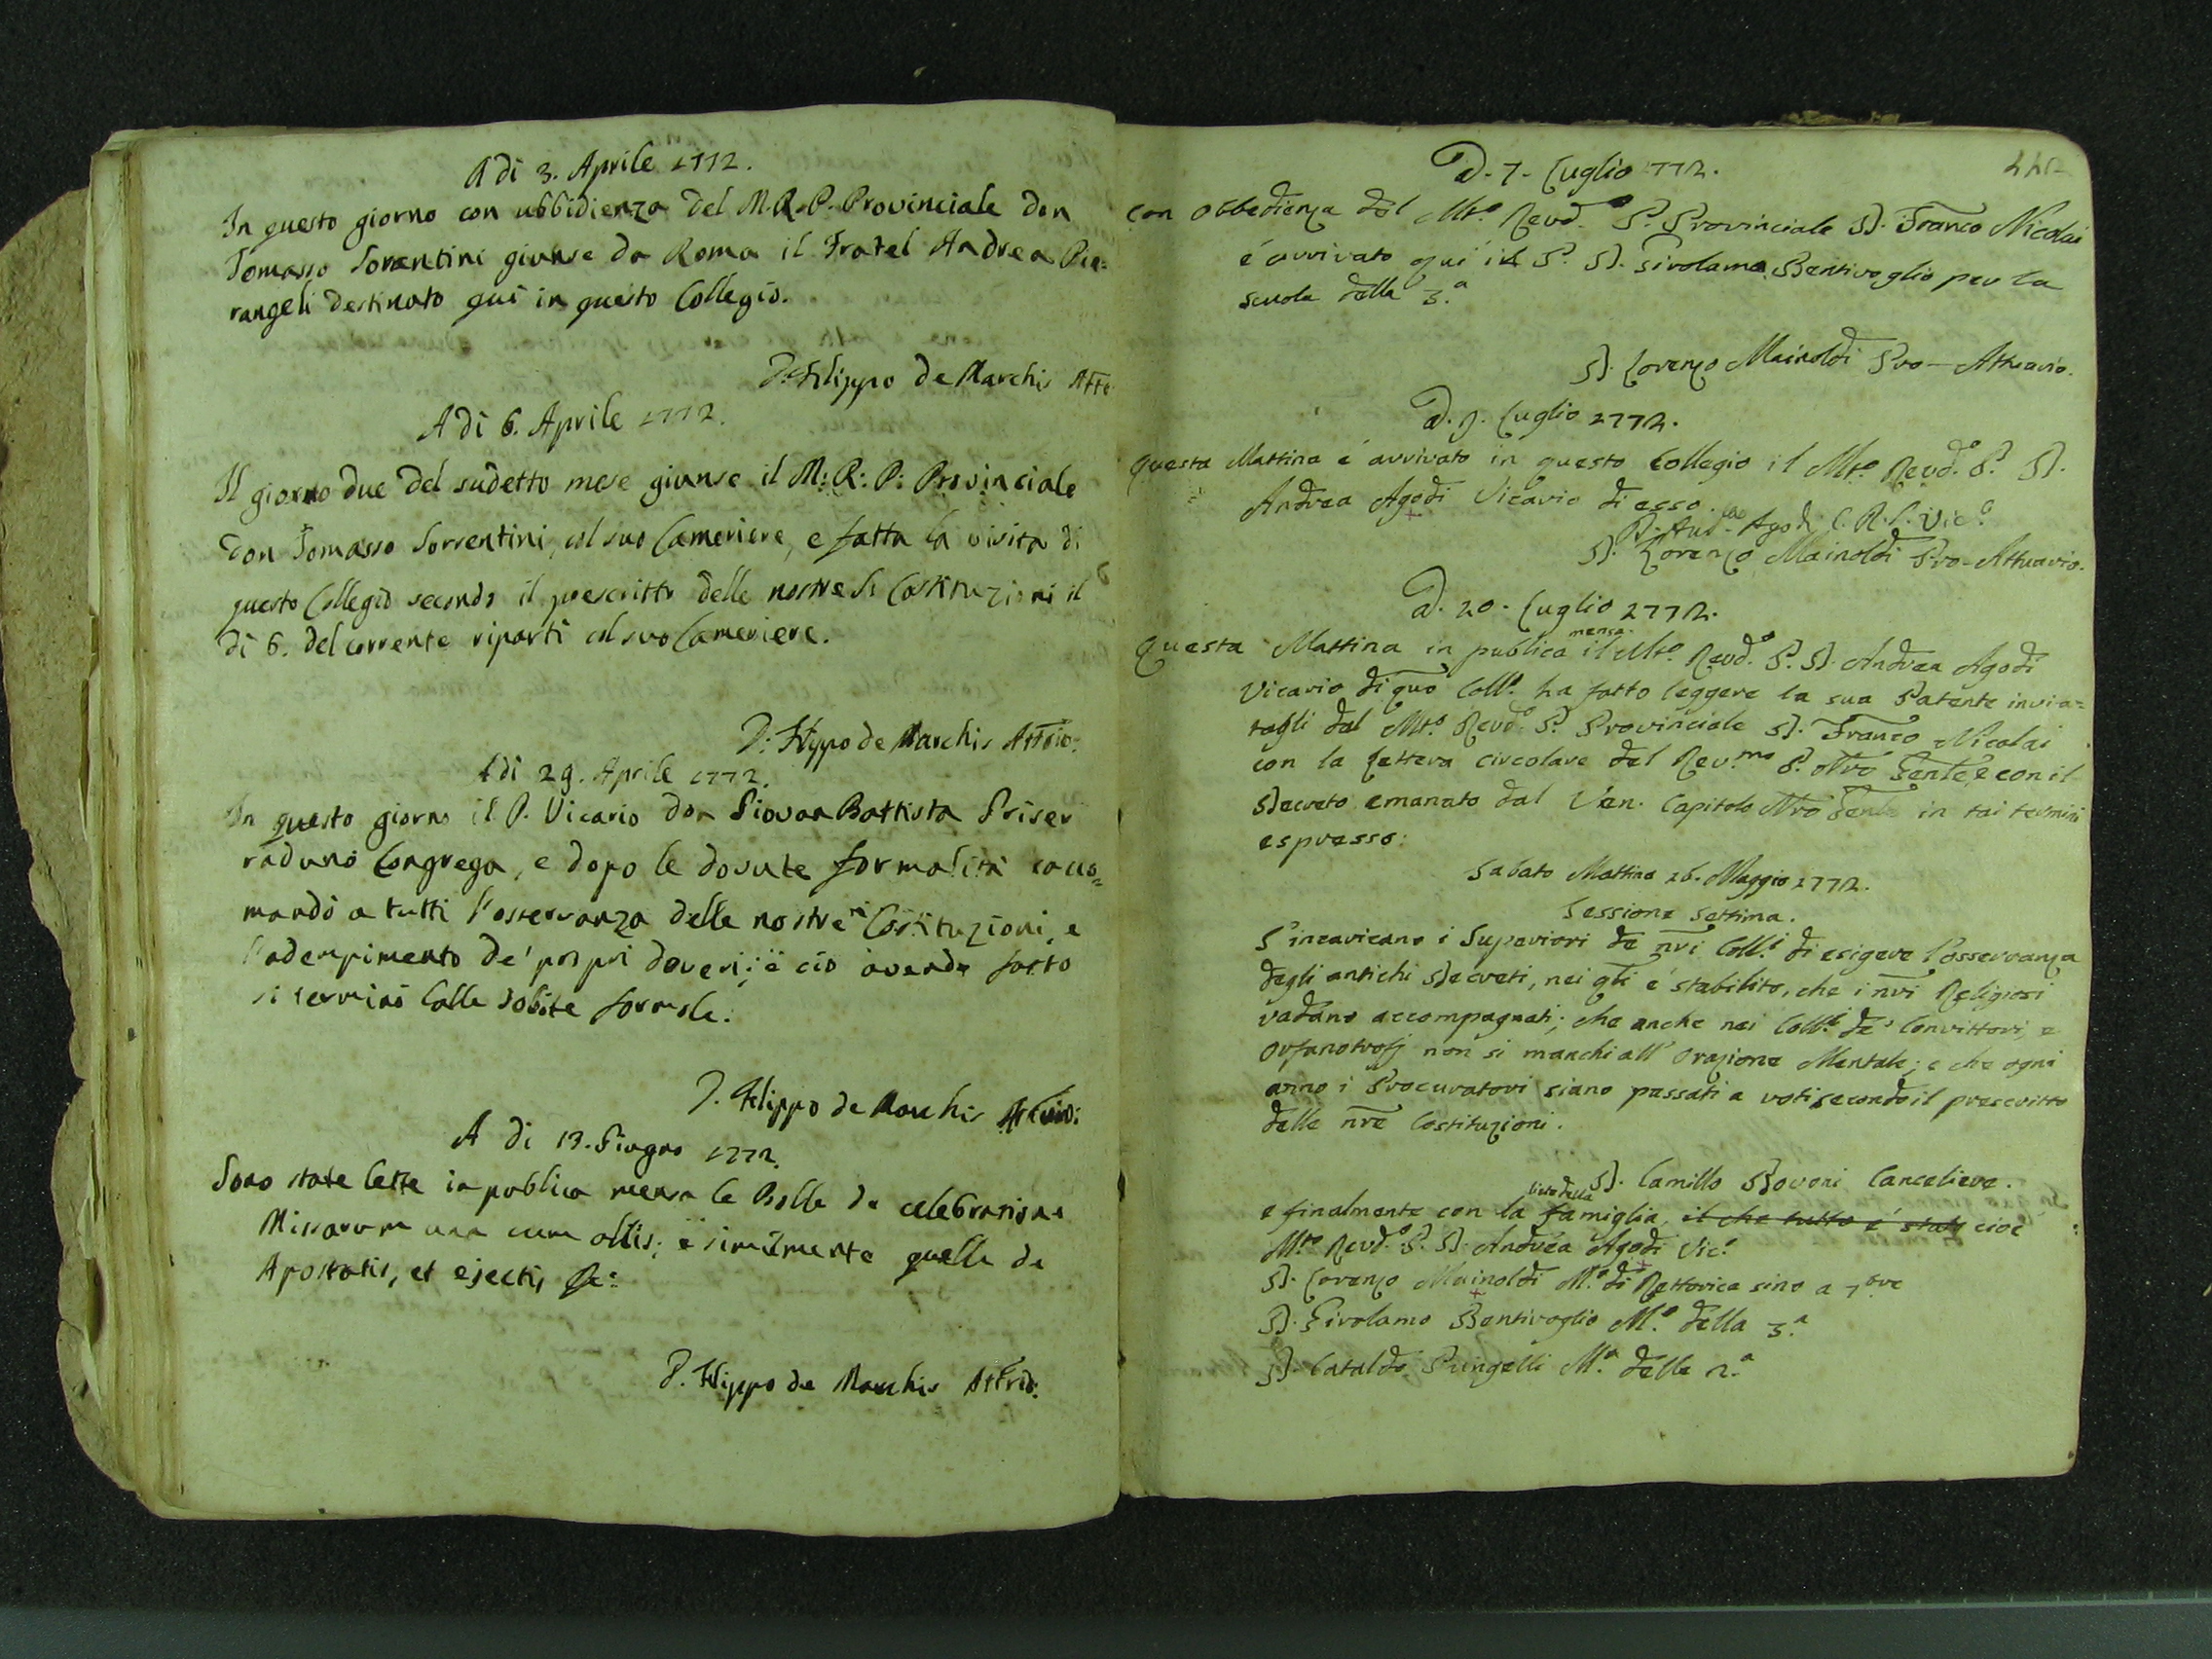 A di 3. Aprile 1772.
In questo giorno con ubbidienza del M. R. P. Provinciale don
Tomasso Sorentini giunse da Roma il Fratel Andrea Pie=
rangeli destinato qui in questo Collegio.
D. Filippo de Marchis Atto.
A di 6. Aprile 1772.
Il giorno due del sudetto mese giunse il M: R: P: Provinciale
Don Tomasso Sorrentini, col suo Cameriere, e fatta la visita di
questo Collegio secondo il prescritto delle nostre Se Costituzioni il
di 6. del corrente riparti col suo Cameriere.
D: Filippo de Marchis Attrio:
A di 29. Aprile 1772.
In questo giorno il P. Vicario don Giovan Battista Priser
radunò Congrega, e dopo le dovute formalità raccо=
mandò a tutti l'osservanza delle nostre Costituzioni, e
l'adempimento de' propri doveri; e ciò avendo fatto
si terminò Colle solite formole.
D. Filippo de Marchis Attuio:
A di 13. Giugno 1772.
Sono state lette in publica mensa le Bolle de celebratione
Missarum una cum aliis; e similmente quelle de
Apostatis, et ejectis &c:
D. Filippo de Marchis Attrio:
A. 7. Luglio 1772.
con obbedienza del Mto. Revd.o P. Provinciale D. Franco Nicolai
é arrivato qui il P. D. Girolamo Bentivoglio per la
scuola della 3.a
D. Lorenzo Mainoldi Pro-Attuario.
A. 9. Luglio 1772.
Questa Mattina é arrivato in questo Collegio il Mto. Revd.o P. D.
Andrea Agodi Vicario di esso.
D. And.ea Agodi C. R. S. Vic.o
D. Lorenzo Mainoldi Pro-Attuario.
A. 20. Luglio 1772.
Questa Mattina in publica mensa il Mto. Revd.o P. D. Andrea Agodi
Vicario di quo Coll.o ha fatto leggere la sua Patente invia=
tagli dal Mto. Revd.o P. Provinciale D. Franco Nicolai
con la Lettera circolare del Rev.mo P. Nro Gente, e con il
Decreto emanato dal Ven. Capitolo Nro Genle in tai termini
espresso:
Sabato Mattina 16. Maggio 1772.
Sessione Settima.
S'incaricano i Superiori de nri Coll.i di esigere l'osservanza
degli antichi Decreti, nei qli é stabilito, che i nri Religiosi
vadano accompagnati; che anche nei Coll.i de' Convittori, e
Orfanotrofj non si manchi all' Orazione Mentale; e che ogni
anno i Procuratori siano passati a voti secondo il prescritto
delle nre Costituzioni.
D. Camillo Bovoni Cancelliere.
e finalmente con la lista della famiglia, il che tutto é stato cioé
M.to Revd.o P. D. Andrea Agodi Vic.o
D. Lorenzo Mainoldi M.o di Rettorica sino a 7bre
D. Girolamo Bentivoglio M.o della 3.a
D. Cataldo Pungelli M.o della 2.a